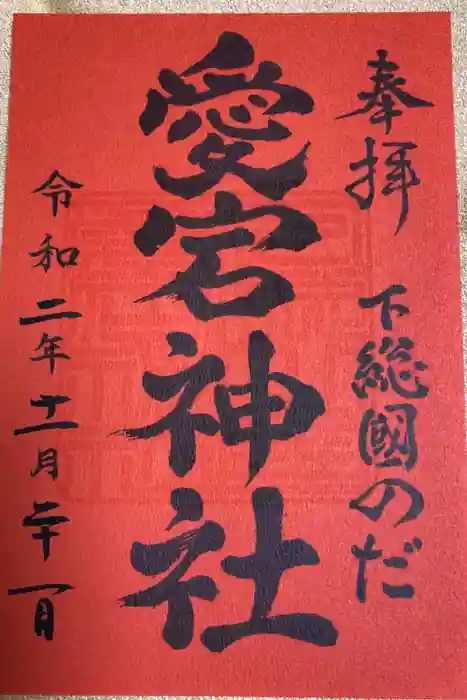 奉拝 下総國のだ
愛宕神社
令和二年十一月二十一日